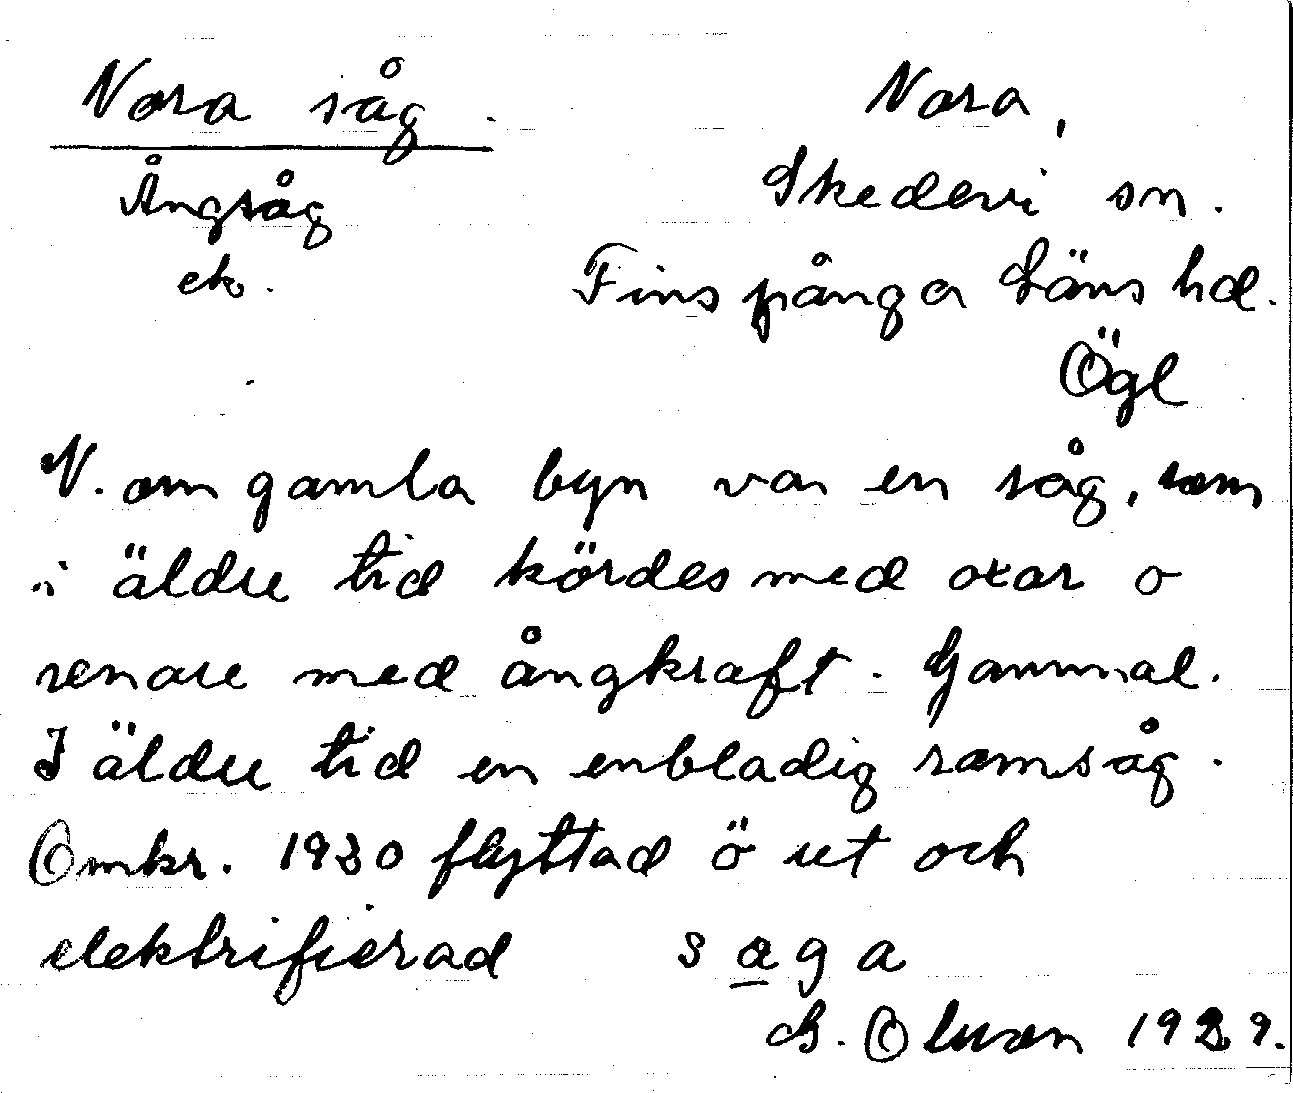 Nora såg.
Ångsåg
ek.
Nora,
Skedevi sn.
Finspånga Läns hd.
Ögl
N. om gamla byn var en såg, som
i äldre tid kördes med oxar o
senare med ångkraft. Gammal.
I äldre tid en enbladig ramsåg.
Omkr. 1930 flyttad ö ut och
elektrifierad saga
G. Olsson 1939.